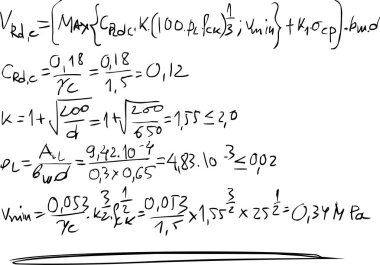 V_Rd,c = (MAX{C_Rd,c·K(100·ρ_L·f_ck)^1/3; υmin} + K_1σ_cp)·b_w·d
C_Rd,c = 0,18/γ_C = 0,18/1,5 = 0,12
K = 1 + √(200/d) = 1 + √(200/650) = 1,55 ≤ 2,0
ρ_L = A_sL/(b_w·d) = 9,42·10^-4/(0,3×0,65) = 4,83·10^-3 ≤ 0,02
υmin = 0,053/γ_C·K^3/2·f_ck^1/2 = 0,053/1,5 × 1,55^3/2 × 25^1/2 = 0,34 MPa